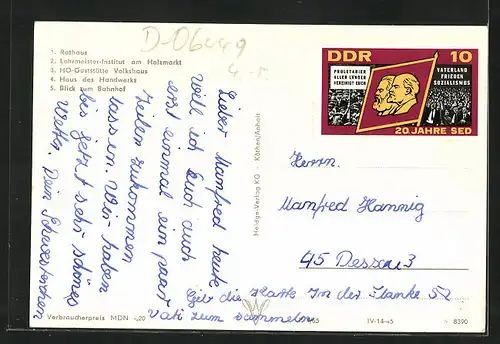 D-06449
4.-
1. Rathaus
2. Lehrmeister-Institut am Holzmarkt
3. HO-Gaststätte Volkshaus
4. Haus des Handwerks
5. Blick zum Bahnhof
DDR 10
PROLETARIER
ALLER LÄNDER
VEREINIGT EUCH
VATERLAND
FRIEDEN
SOZIALISMUS
20 JAHRE SED
Lieber Manfred heute
will ich Euch auch
erst einmal ein paar
Zeilen zukommen
lassen. Wir haben
bis jetzt sehr schönes
Wetter. Dein Schwesterchen
Heldge-Verlag KG - Köthen/Anhalt
Herrn.
Manfred Hannig
45 Dessau 3
Gib die Karte In der Flanke 52
Vati zum sammeln
Verbraucherpreis MDN -,20
IV-14-45
8390